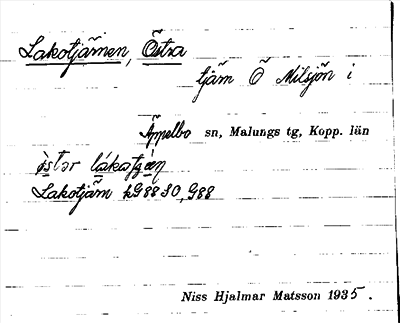 Lakotjärnen, Östra
tjärn Ö Milsjön i
Äppelbo sn, Malungs tg, Kopp. län
östər lákatjän
Lakotjärn kG8830, G88
Niss Hjalmar Matsson 1935.